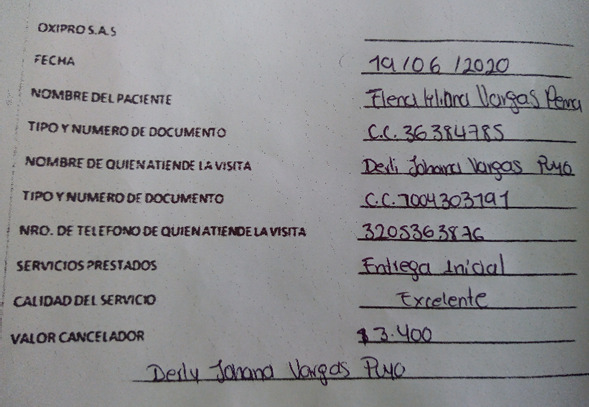 OXIPRO S.A.S
FECHA 19/06/2020
NOMBRE DEL PACIENTE Elena Liliana Vargas Penna
TIPO Y NUMERO DE DOCUMENTO C.C. 36384785
NOMBRE DE QUIEN ATIENDE LA VISITA Derli Johana Vargas Puyo
TIPO Y NUMERO DE DOCUMENTO C.C. 1004303191
NRO. DE TELEFONO DE QUIEN ATIENDE LA VISITA 3205363876
SERVICIOS PRESTADOS Entrega inicial
CALIDAD DEL SERVICIO Excelente
VALOR CANCELADOR $3.400
Derly Johana Vargas Puyo